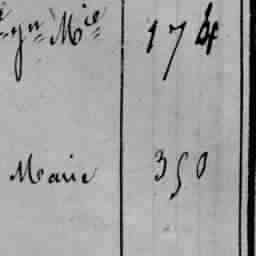 yn Mie 174
Marie 350